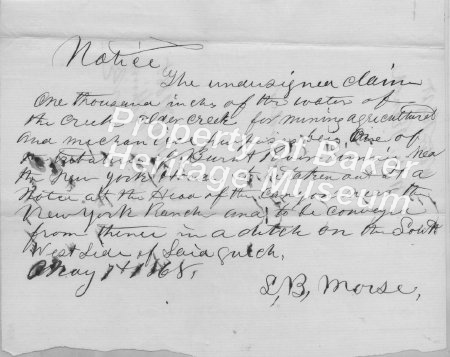 Notice
The undersigned claim
One thousand inches of the water of
the creek alder creek for mining agricultural
and mechanical One of
Burnt River near
the New York taken out at a
Notice at the Head of the Canyon near the
New York Ranch and to be conveyed
from thence in a ditch on the South
West side of Said gulch.
May 1868.
L, B, Morse,
Property of Baker
Heritage Museum